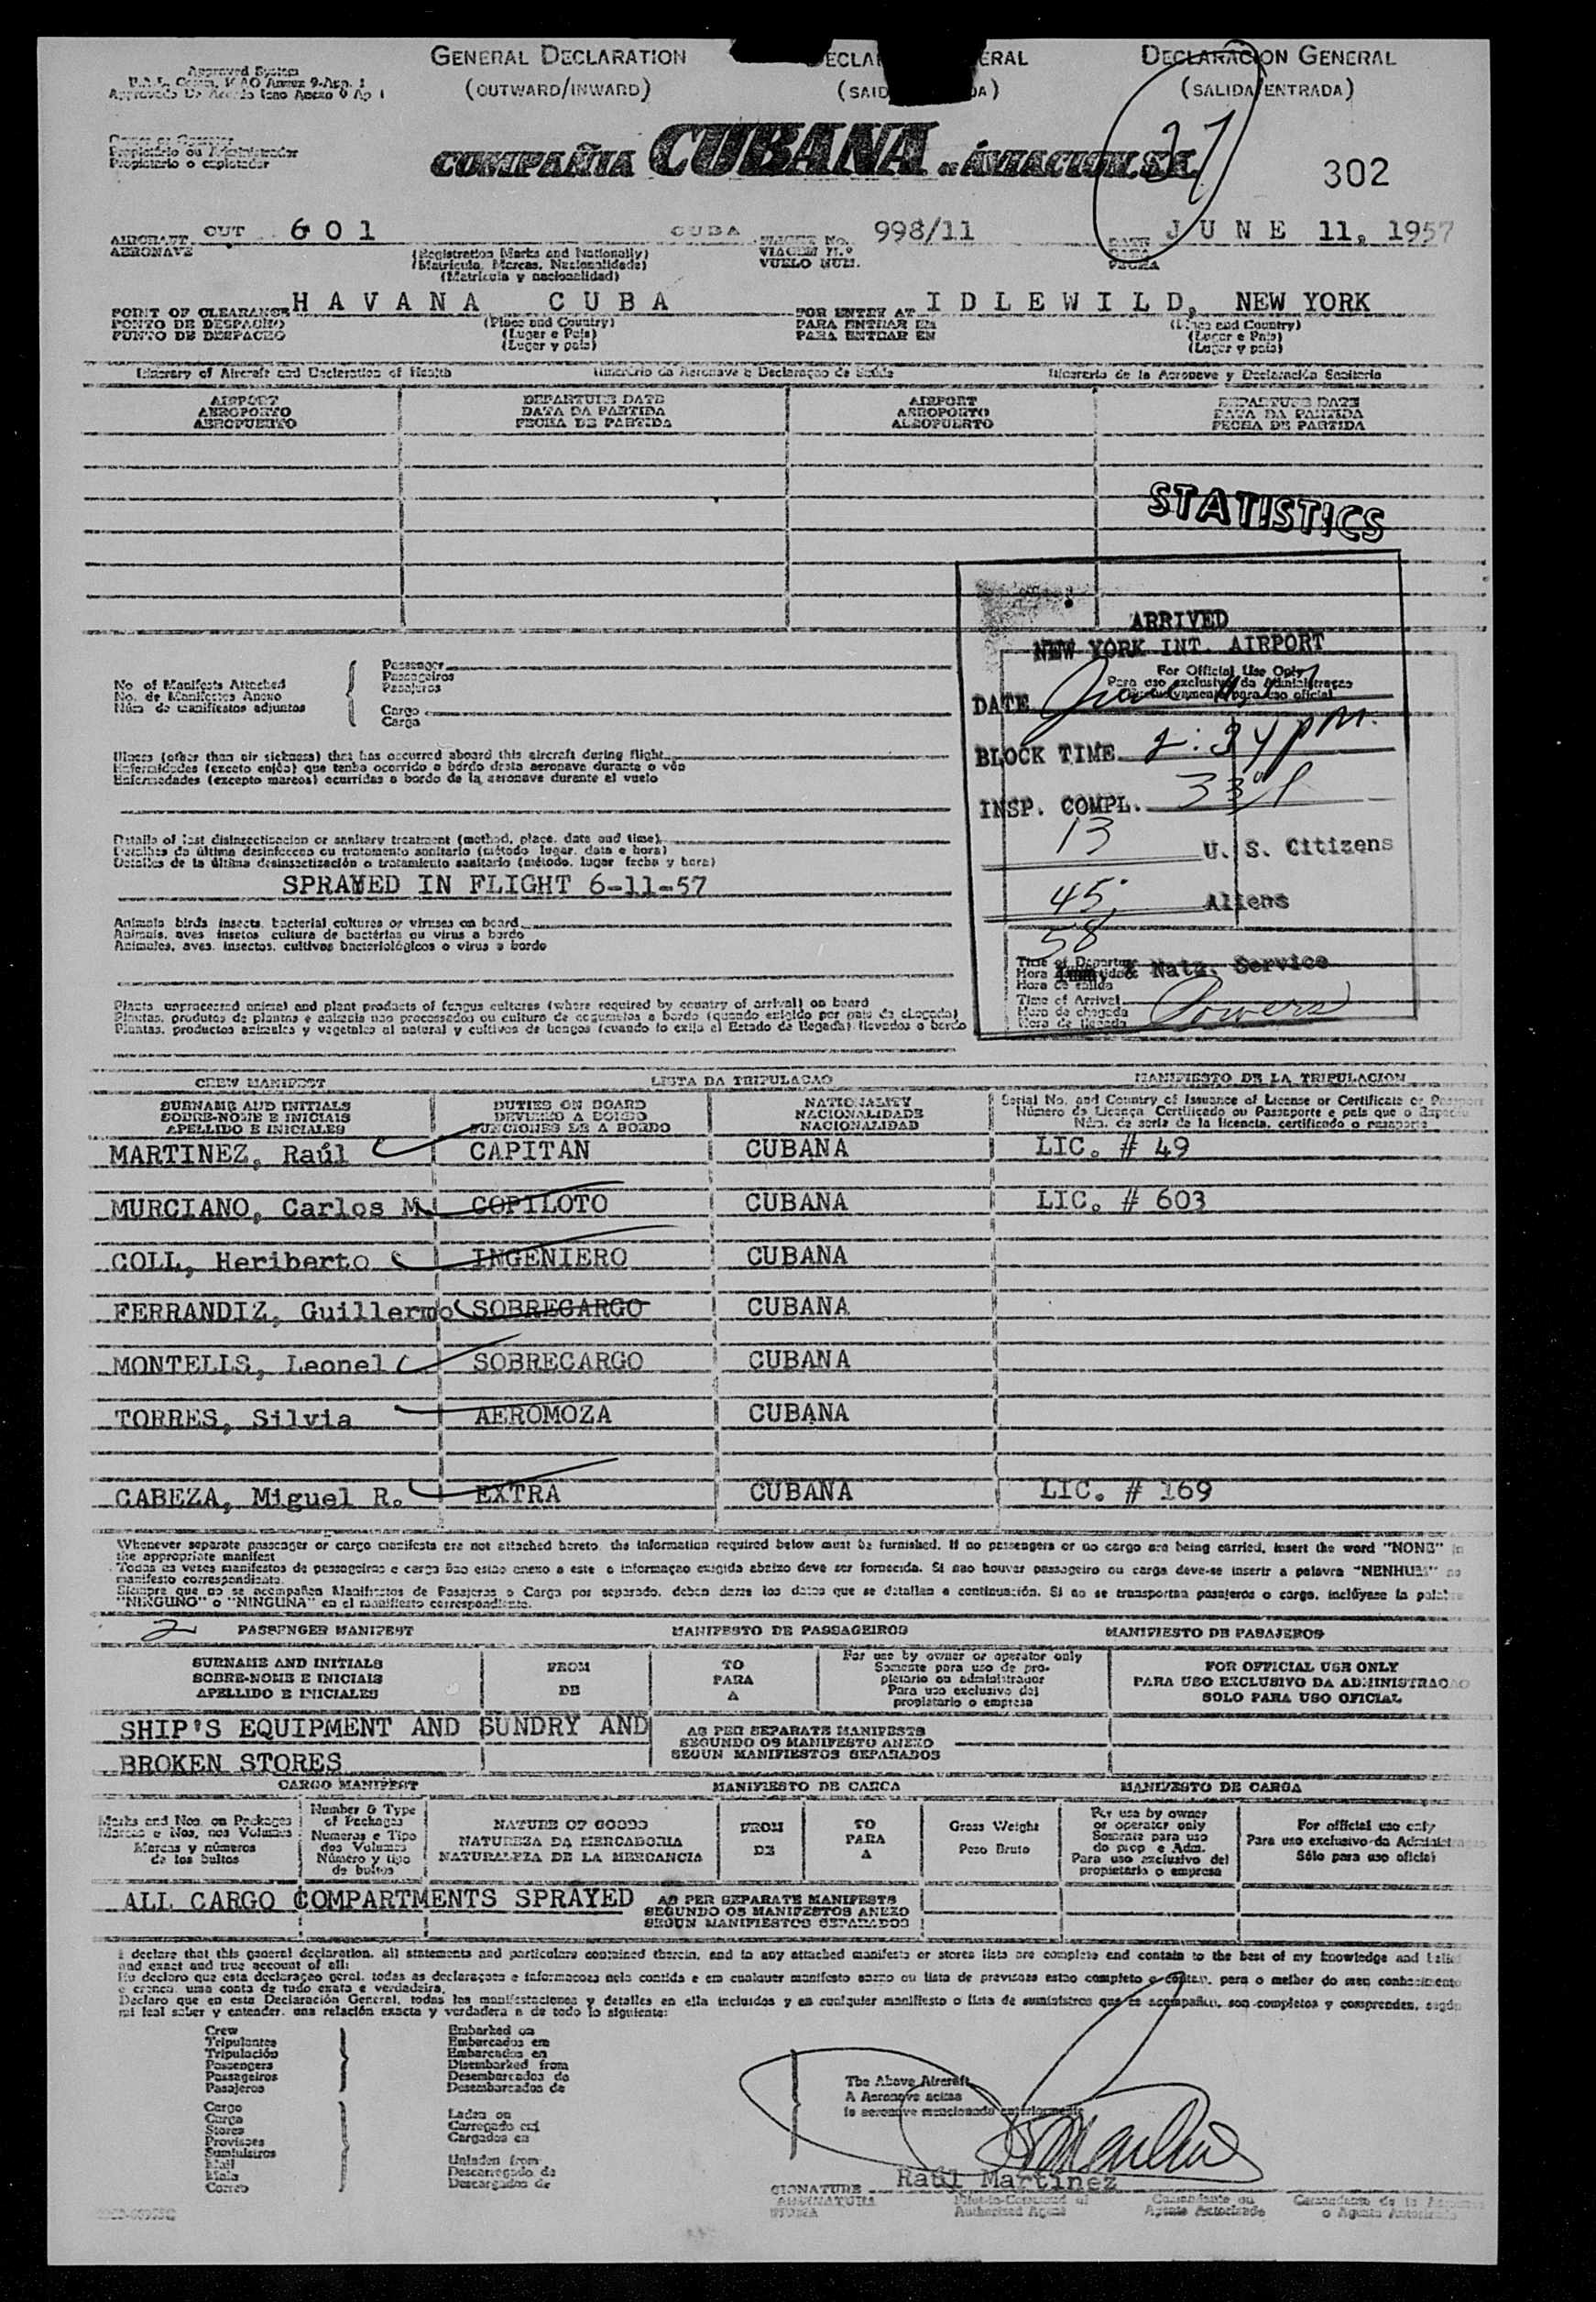 GENERAL DECLARATION
(OUTWARD/INWARD)
DECLARACION GENERAL
(SALIDA/ENTRADA)
Approved System
Propietário ou Administrador
Propietario o explotador
COMPAÑIA CUBANA DE AVIACION, S.A.
27
302
AIRCRAFT CUT 601 CUBA FLIGHT No. 998/11 DATE JUNE 11, 1957
AERONAVE VIAGEM N.º DATA
VUELO NUM. FECHA
(Registration Marks and Nationality)
(Matricula, Marcas, Nacionalidade)
(Matrícula y nacionalidad)
POINT OF CLEARANCE HAVANA CUBA FOR ENTRY AT IDLEWILD, NEW YORK
PONTO DE DESPACHO (Place and Country) PARA ENTRAR EM (Place and Country)
PUNTO DE DESPACHO (Lugar e País) PARA ENTRAR EN (Lugar e País)
(Lugar y país) (Lugar y país)
Itinerary of Aircraft and Declaration of Health Itinerário da Aeronave e Declaração de Saúde Itinerario de la Aeronave y Declaración Sanitaria
AIRPORT DEPARTURE DATE AIRPORT DEPARTURE DATE
AEROPORTO DATA DA PARTIDA AEROPORTO DATA DA PARTIDA
AEROPUERTO FECHA DE PARTIDA AEROPUERTO FECHA DE PARTIDA
STATISTICS
ARRIVED
NEW YORK INT. AIRPORT
For Official Use Only
Para uso exclusivo da Administraçao
DATE June 11
BLOCK TIME 2:34 pm.
INSP. COMPL.
13 U. S. Citizens
45 Aliens
58
& Natz. Service
Time of Departure
Hora de salida
Time of Arrival
Hora de chegada
Hora de llegada
Powers
No. of Manifests Attached
No. de Manifestos Anexo
Núm. de manifiestos adjuntos
Passenger
Passageiros
Pasajeros
Cargo
Carga
Illness (other than air sickness) that has occurred aboard this aircraft during flight
Enfermidades (exceto enjôo) que tenha ocorrido a bordo desta aeronave durante o vôo
Enfermedades (excepto mareos) ocurridas a bordo de la aeronave durante el vuelo
Details of last disinsectization or sanitary treatment (method, place, date and time)
Detalhes da última desinfecçao ou tratamento sanitario (método lugar, data e hora)
Detalles de la última desinsectización o tratamiento sanitario (método, lugar fecha y hora)
SPRAYED IN FLIGHT 6-11-57
Animals birds insects, bacterial cultures or viruses on board
Animais, aves insetos cultura de bactérias ou virus a bordo
Animales, aves, insectos, cultivos bacteriológicos o virus a bordo
Plants unprocessed animal and plant products of fungus cultures (where required by country of arrival) on board
Plantas, produtos de plantas e animais nao processados ou cultura de cogumelos a bordo (quando exigido por país de chegada)
Plantas, productos animales y vegetales al natural y cultivos de hongos (cuando lo exija el Estado de llegada) llevados a bordo
CREW MANIFEST LISTA DA TRIPULACAO MANIFIESTO DE LA TRIPULACION
SURNAME AND INITIALS DUTIES ON BOARD NATIONALITY Serial No. and Country of Issuance of License or Certificate or Passport
SOBRE-NOME E INICIAIS DEVERES A BORDO NACIONALIDADE Número da Licença, Certificado ou Passaporte e país que o
APELLIDO E INICIALES FUNCIONES DE A BORDO NACIONALIDAD Núm. de serie de la licencia, certificado o pasaporte
MARTINEZ, Raúl CAPITAN CUBANA LIC. # 49
MURCIANO, Carlos M. COPILOTO CUBANA LIC. # 603
COLL, Heriberto INGENIERO CUBANA
FERRANDIZ, Guillermo SOBRECARGO CUBANA
MONTELLS, Leonel SOBRECARGO CUBANA
TORRES, Silvia AEROMOZA CUBANA
CABEZA, Miguel R. EXTRA CUBANA LIC. # 169
Whenever separate passenger or cargo manifests are not attached hereto, the information required below must be furnished. If no passengers or no cargo are being carried, insert the word "NONE" in
the appropriate manifest
Todas as vezes manifestos de passageiros e carga nao estao anexo a este a informaçao exigida abaixo deve ser fornecida. Si nao houver passageiro ou carga deve-se inserir a palavra "NENHUM" no
manifesto correspondiente.
Siempre que no se acompañen Manifiestos de Pasajeros o Carga por separado, deben darse los datos que se detallan a continuación. Si no se transportan pasajeros o cargo, inclúyase la palabra
"NINGUNO" o "NINGUNA" en el manifiesto correspondiente.
2 PASSENGER MANIFEST MANIFESTO DE PASSAGEIROS MANIFIESTO DE PASAJEROS
SURNAME AND INITIALS FROM TO For use by owner or operator only FOR OFFICIAL USE ONLY
SOBRE-NOME E INICIAIS DE PARA Somente para uso de proprietario ou administrador PARA USO EXCLUSIVO DA ADMINISTRACAO
APELLIDO E INICIALES A Para uso exclusivo del propietario o empresa SOLO PARA USO OFICIAL
SHIP'S EQUIPMENT AND SUNDRY AND AS PER SEPARATE MANIFESTS
SEGUNDO OS MANIFESTO ANEXO
BROKEN STORES SEGUN MANIFIESTOS SEPARADOS
CARGO MANIFEST MANIFIESTO DE CARGA MANIFESTO DE CARGA
Marks and Nos. on Packages Number & Type of Packages NATURE OF GOODS FROM TO Gross Weight For use by owner or operator only For official use only
Marcas e Nos. nos Volumes Numeros e Tipo dos Volumes NATUREZA DA MERCADORIA DE PARA Peso Bruto Somente para uso do prop e Adm. Para uso exclusivo da Administraçao
Marcas y números de los bultos Número y tipo de bultos NATURALEZA DE LA MERCANCIA A Para uso exclusivo del propietario o empresa Sólo para uso oficial
ALL CARGO COMPARTMENTS SPRAYED AS PER SEPARATE MANIFESTS
SEGUNDO OS MANIFESTOS ANEXO
SEGUN MANIFIESTOS SEPARADOS
I declare that this general declaration, all statements and particulars contained therein, and in any attached manifests or stores lists are complete and contain to the best of my knowledge and belief
and exact and true account of all:
Eu declaro que esta declaraçao geral, todas as declaraçoes e informacoes nela contida e em cualquer manifesto anexo ou lista de previsoes estao completo e contem, para o melhor do meu conhecimento
e crenca, uma conta de tudo exata e verdadeira.
Declaro que en esta Declaración General, todas las manifestaciones y detalles en ella incluidos y en cualquier manifiesto o lista de suministros que es acompañan, son completos y comprenden, según
mi leal saber y entender, una relación exacta y verdadera a de todo lo siguiente:
Crew
Tripulantes
Tripulación
Passengers
Passageiros
Pasajeros
Embarked on
Embarcados em
Embarcados en
Disembarked from
Desembarcados de
Desembarcados de
Cargo
Carga
Stores
Provisoes
Suministros
Mail
Mala
Correo
Laden on
Carregado em
Cargados en
Unladen from
Descarregado de
Descargados de
The Above Aircraft
A Aeronave acima
la aeronave mencionada anteriormente
SIGNATURE Raúl Martínez
ASSINATURA Pilot-in-Command or Comandante ou Comandante de la Aeronave
FIRMA Authorized Agent Agente Autorizado o Agente Autorizado